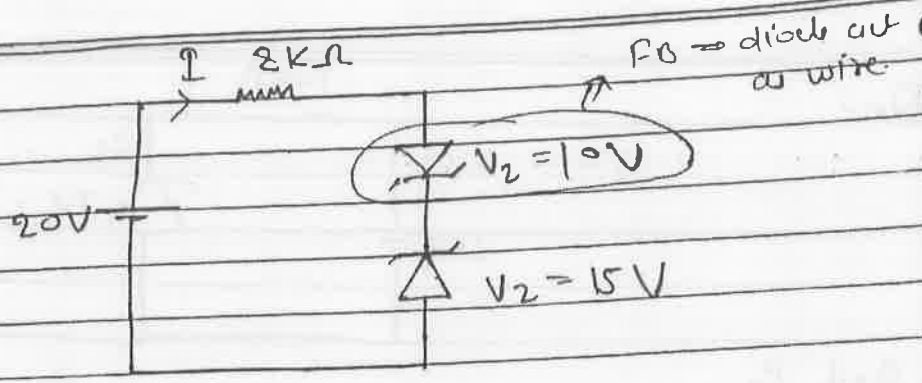 I 2KΩ
FB ⇒ diode act
as wire.
V2 = 10V
20V
V2 = 15V